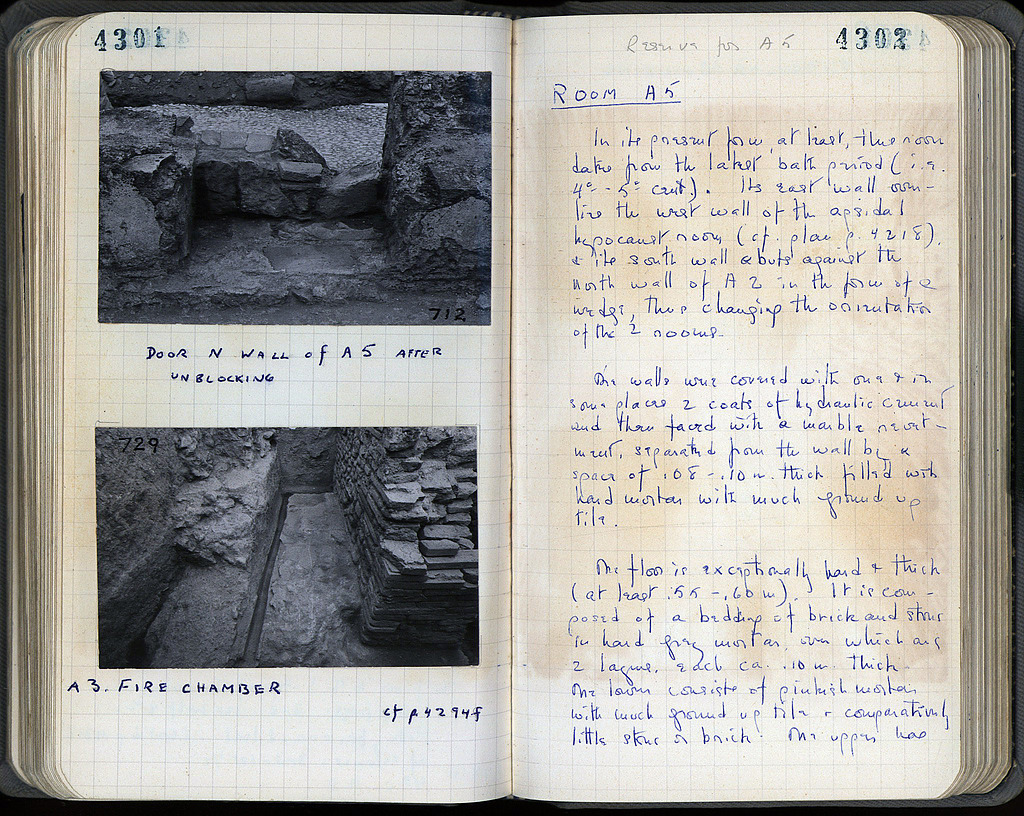 4301
712
DOOR N WALL of A5 AFTER
UNBLOCKING
729
A3. FIRE CHAMBER
cf p. 4294f
4302
Reserve for A5
ROOM A5
In its present form, at least, this room
dates from the latest bath period (i.e.
4º - 5º cent.). Its east wall over-
lies the west wall of the apsidal
hypocaust room (cf. plan p. 4218),
& its south wall abuts against the
north wall of A2 in the form of a
wedge, thus changing the orientation
of the 2 rooms.
The walls were covered with one & in
some places 2 coats of hydraulic cement
and then faced with a marble revet-
ment, separated from the wall by a
space of .08 - .10 m. thick filled with
hard mortar with much ground up
tile.
The floor is exceptionally hard & thick
(at least .55 - .60 m). It is com-
posed of a bedding of brick and stone
in hard grey mortar, over which are
2 layers, each ca. .10 m. thick.
The lower consists of pinkish mortar
with much ground up tile & comparatively
little stone or brick. The upper has